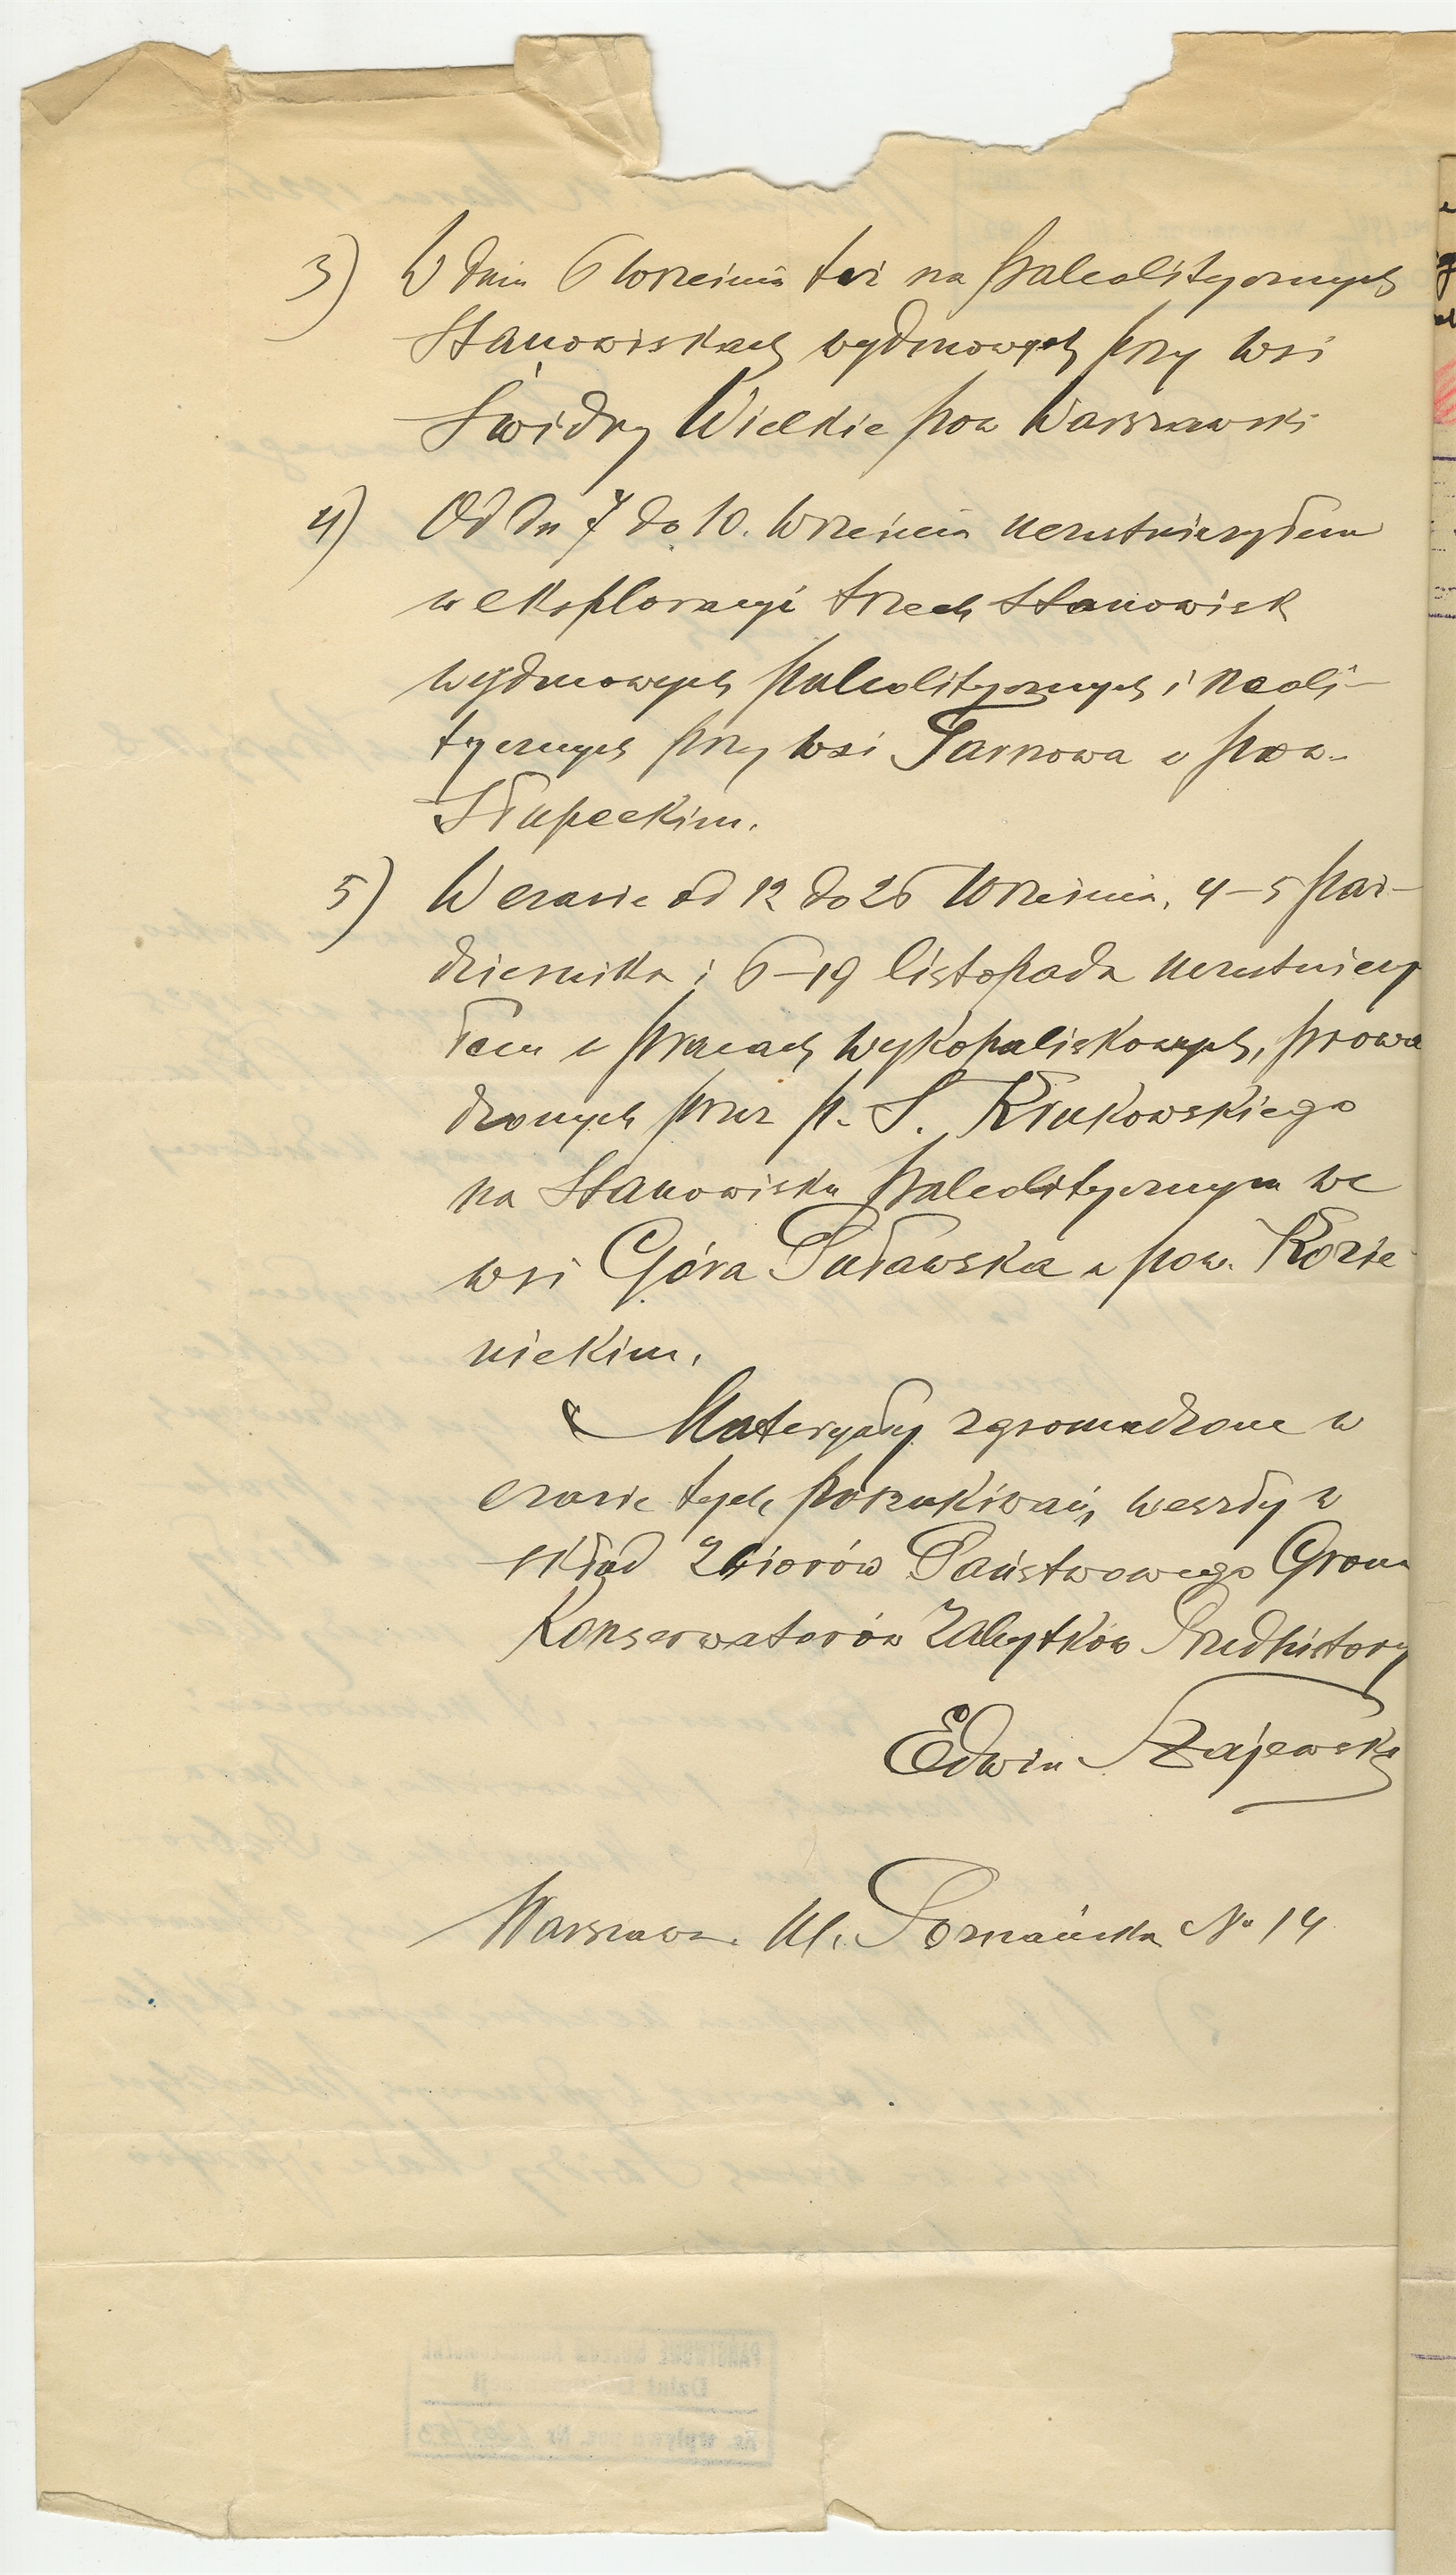 3) W dniu 6 września też na paleolitycznych
Stanowiskach wydmowych przy wsi
Świdry Wielkie pow Warszawski
4) Od dn 7 do 10. września uczestniczyłem
w eksploracyi trzech Stanowisk
wydmowych paleolitycznych i neoli-
tycznych przy wsi Tarnowa w pow.
Słupeckim.
5) W czasie od 12 do 26 września, 4–5 paź-
dziernika i 6–19 listopada uczestniczy
łem w pracach wykopaliskowych, prowa
dzonych przez p. S. Krukowskiego
na Stanowisku paleolitycznym we
wsi Góra Puławska w pow. Kozie
nickim.
Materyały zgromadzone w
czasie tych poszukiwań, weszły w
skład Zbiorów Państwowego Grona
Konserwatorów Zabytków Przedhistory
Edwin Szajewski
Warszawa. Ul. Poznańska No 14